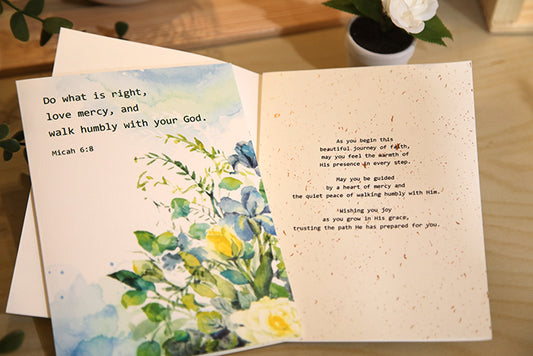 Do what is right,
love mercy, and
walk humbly with your God.
Micah 6:8
As you begin this
beautiful journey of faith,
may you feel the warmth of
His presence in every step.
May you be guided
by a heart of mercy and
the quiet peace of walking humbly with Him.
Wishing you joy
as you grow in His grace,
trusting the path He has prepared for you.